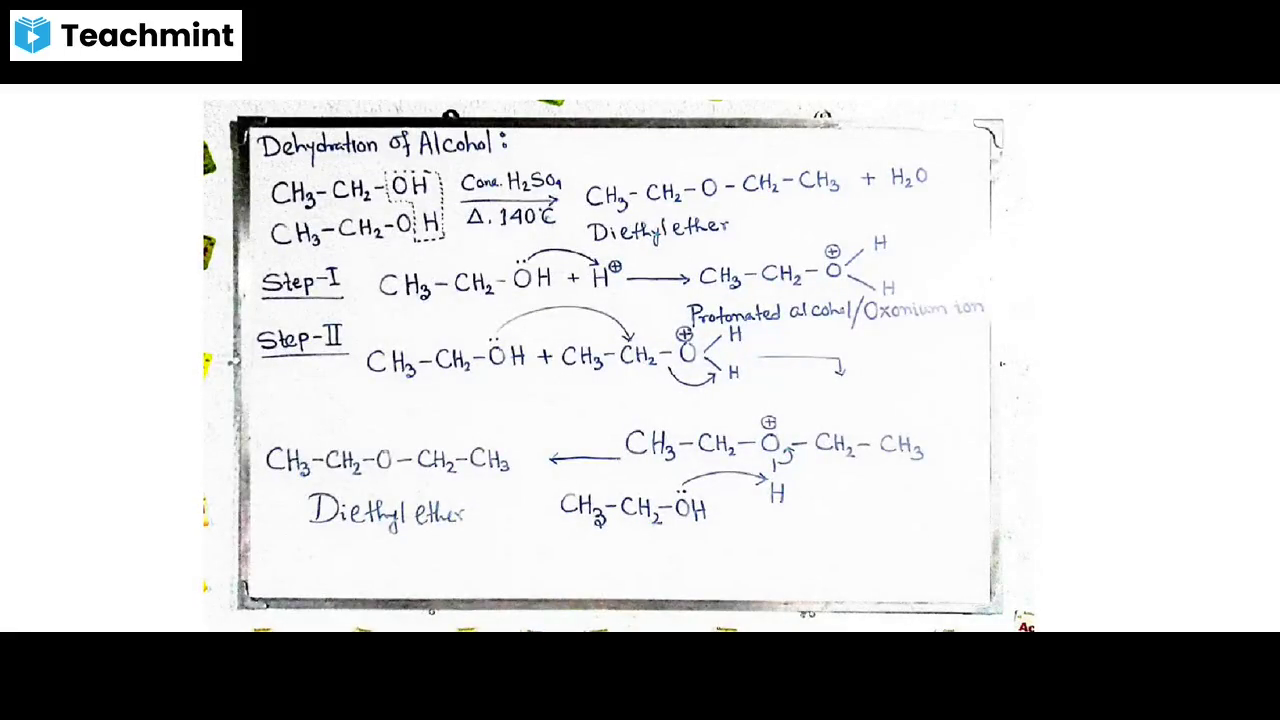 Teachmint
Dehydration of Alcohol:
CH₃-CH₂-OH Conc. H₂SO₄ CH₃-CH₂-O-CH₂-CH₃ + H₂O
CH₃-CH₂-OH Δ. 140°C Diethylether
Step-I CH₃-CH₂-ÖH + H⊕ → CH₃-CH₂-O⊕ H H
Protonated alcohol/Oxonium ion
Step-II CH₃-CH₂-ÖH + CH₃-CH₂-O⊕ H H
CH₃-CH₂-O-CH₂-CH₃ ← CH₃-CH₂-O⊕-CH₂-CH₃
H
Diethyl ether CH₃-CH₂-ÖH
Ac